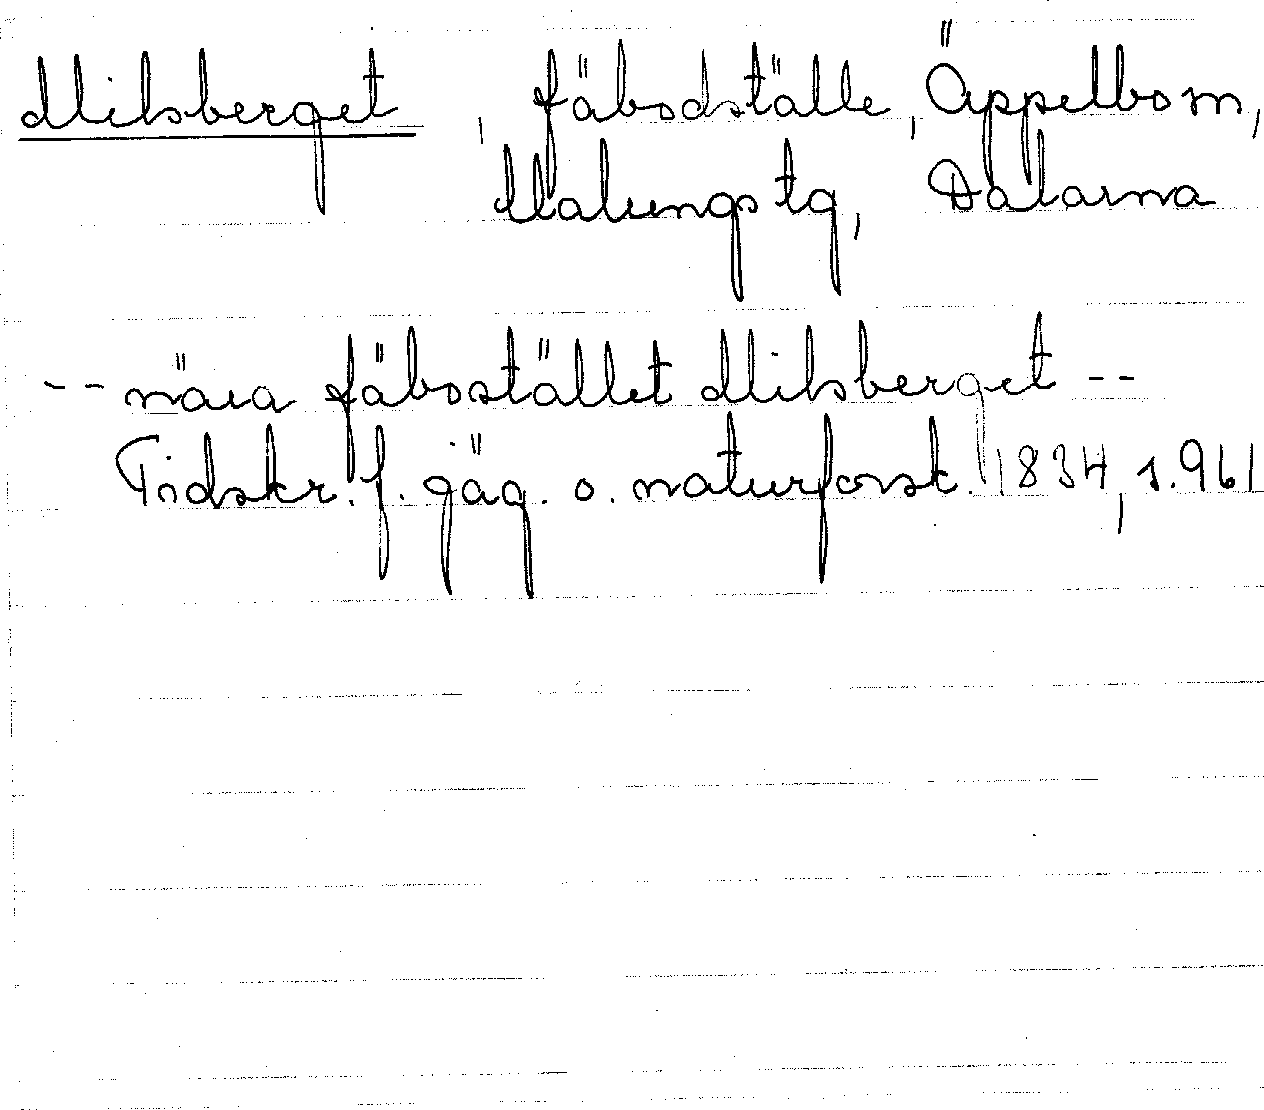 Milsberget, fäbodställe, Äppelbo sn,
Malungs tg, Dalarna
-- nära fäbostället Milsberget --
Tidskr. f. jäg. o. naturforsk. 1834, s. 961